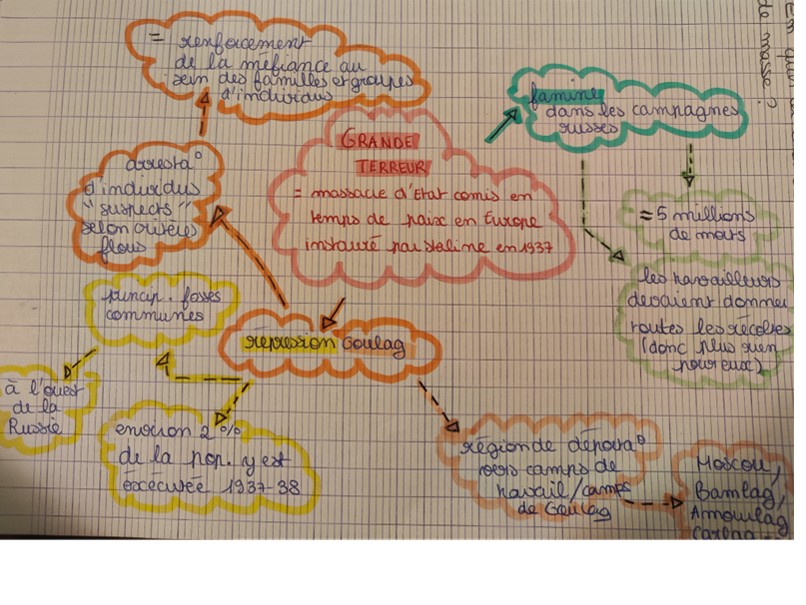 = renforcement
de la méfiance au
sein des familles et groupes
d'individus
famine
dans les campagnes
russes
GRANDE
TERREUR
= massacre d'Etat comis en
temps de paix en Europe
instauré par Staline en 1937
arresta°
d'individus
"suspects"
selon critères
flous
≈ 5 millions
de morts
les travailleurs
devaient donner
toutes les récoltes
(donc plus rien
pour eux)
princip. fosses
communes
répression Goulag
à l'ouest
de la
Russie
environ 2 %
de la pop. y est
éxécutée 1937-38
région de déporta°
vers camps de
travail/camps
de Goulag
Moscou,
Bamlag,
Carlag
de masse ?